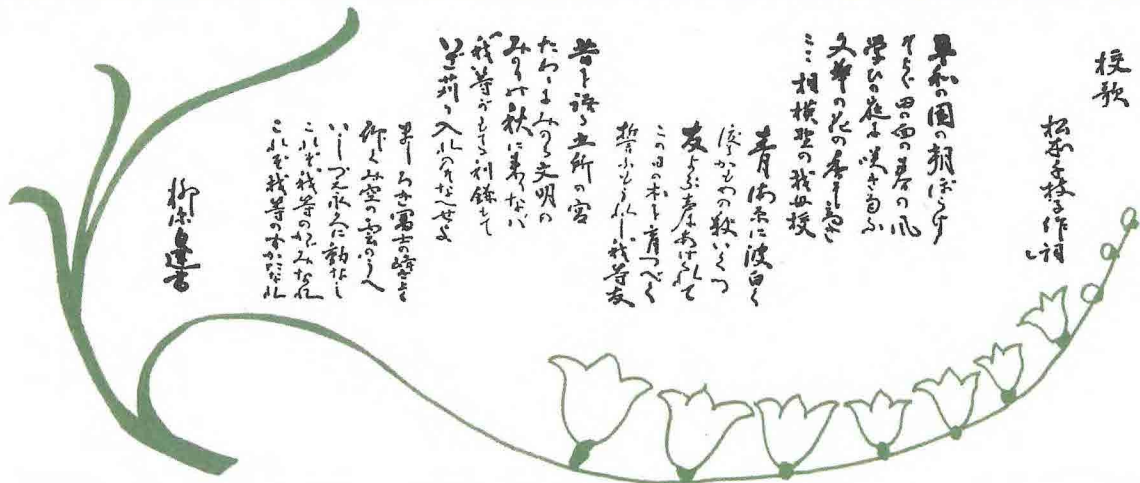 校歌
松本千枝子作詞
平和の国の朝ぼらけ
そよぐ田の面の春の風
学びの庭に咲き匂ふ
文華の花の香も高き
ここ相模野の我母校
青海原に波白く
鴎かもめの歌いくつ
友よぶ声あげれて
この日の本を育つべく
誓ふもうれし我等友
昔を語る五所の宮
たわゝにみのる文明の
みのりの秋に来りなば
我等がもてる利鎌もて
いざ苅り入れのそなへせよ
ましろき富士の峰きよく
輝くみ空の雲のうへ
いしづえ永久に動なし
これぞ我等のかゞみなれ
これぞ我等のすがたなれ